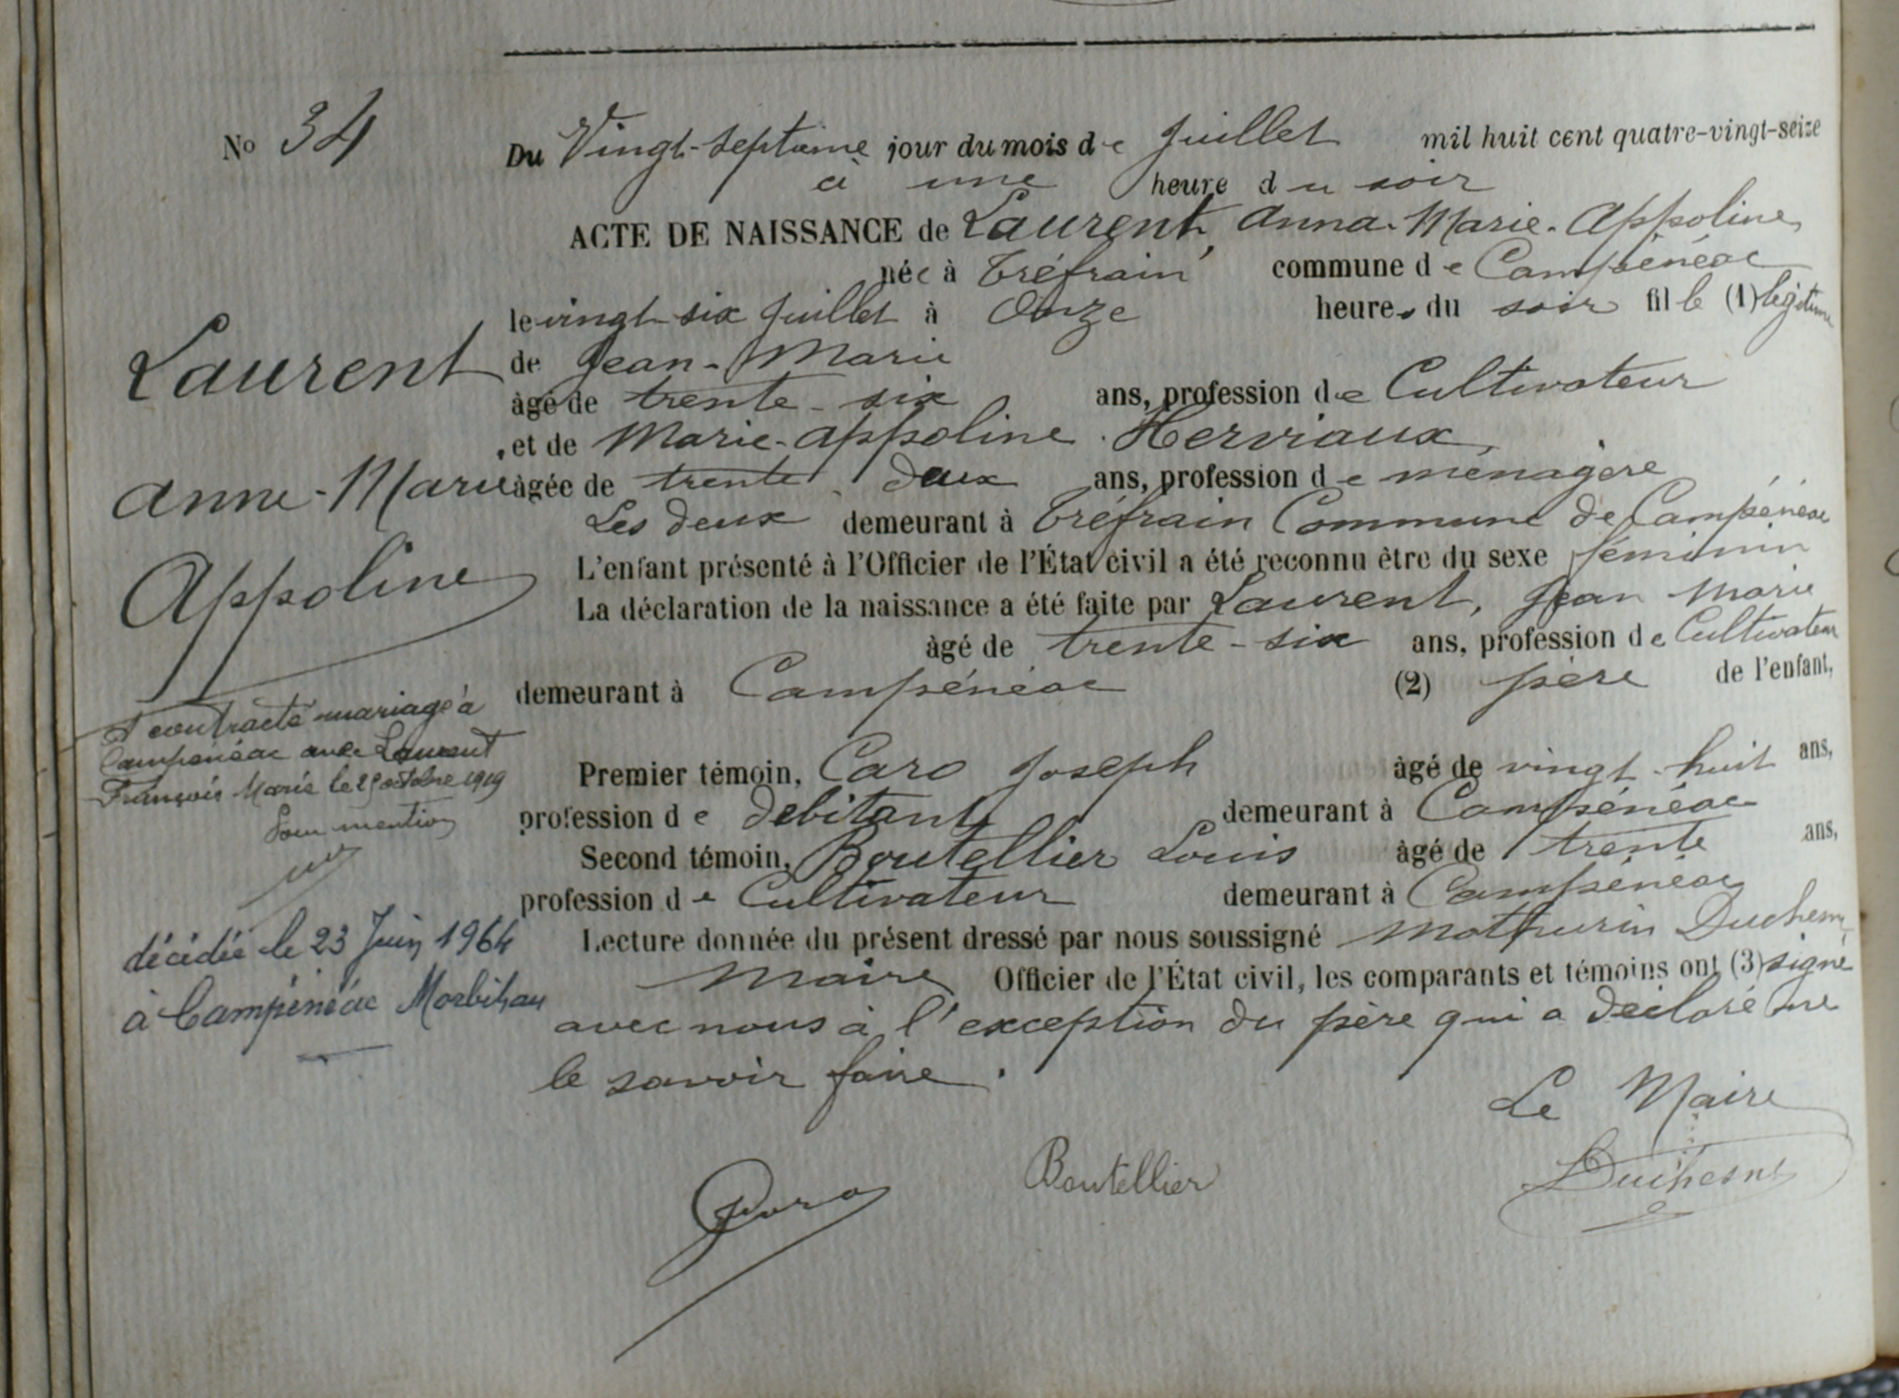 No 34
Du Vingt-septième jour du mois de Juillet mil huit cent quatre-vingt-seize
à une heure du soir
ACTE DE NAISSANCE de Laurent, Anna-Marie-Appoline
née à Tréfrain commune de Campénéac
le vingt six Juillet à Onze heures du soir fille (1) légitime
de Jean-Marie
âgé de trente-six ans, profession de Cultivateur
et de Marie-Appoline Herviaux
âgée de trente deux ans, profession de ménagère
Les deux demeurant à Tréfrain Commune de Campénéac
L'enfant présenté à l'Officier de l'État civil a été reconnu être du sexe féminin
La déclaration de la naissance a été faite par Laurent, Jean Marie
âgé de trente-six ans, profession de Cultivateur
demeurant à Campénéac (2) père de l'enfant,
Premier témoin, Caro Joseph âgé de vingt-huit ans,
profession de débitant demeurant à Campénéac
Second témoin, Boutellier Louis âgé de trente ans,
profession de Cultivateur demeurant à Campénéac
Lecture donnée du présent dressé par nous soussigné Mathurin Duchesne
Maire Officier de l'État civil, les comparants et témoins ont (3) signé
avec nous à l'exception du père qui a déclaré ne
le savoir faire.
Le Maire
Caro Boutellier Duchesne
Laurent
Anne-Marie
Appoline
A contracté mariage à
Campénéac avec Laurent
François Marie le octobre 1919
Pour mention
décédée le 23 Juin 1964
à Campénéac Morbihan